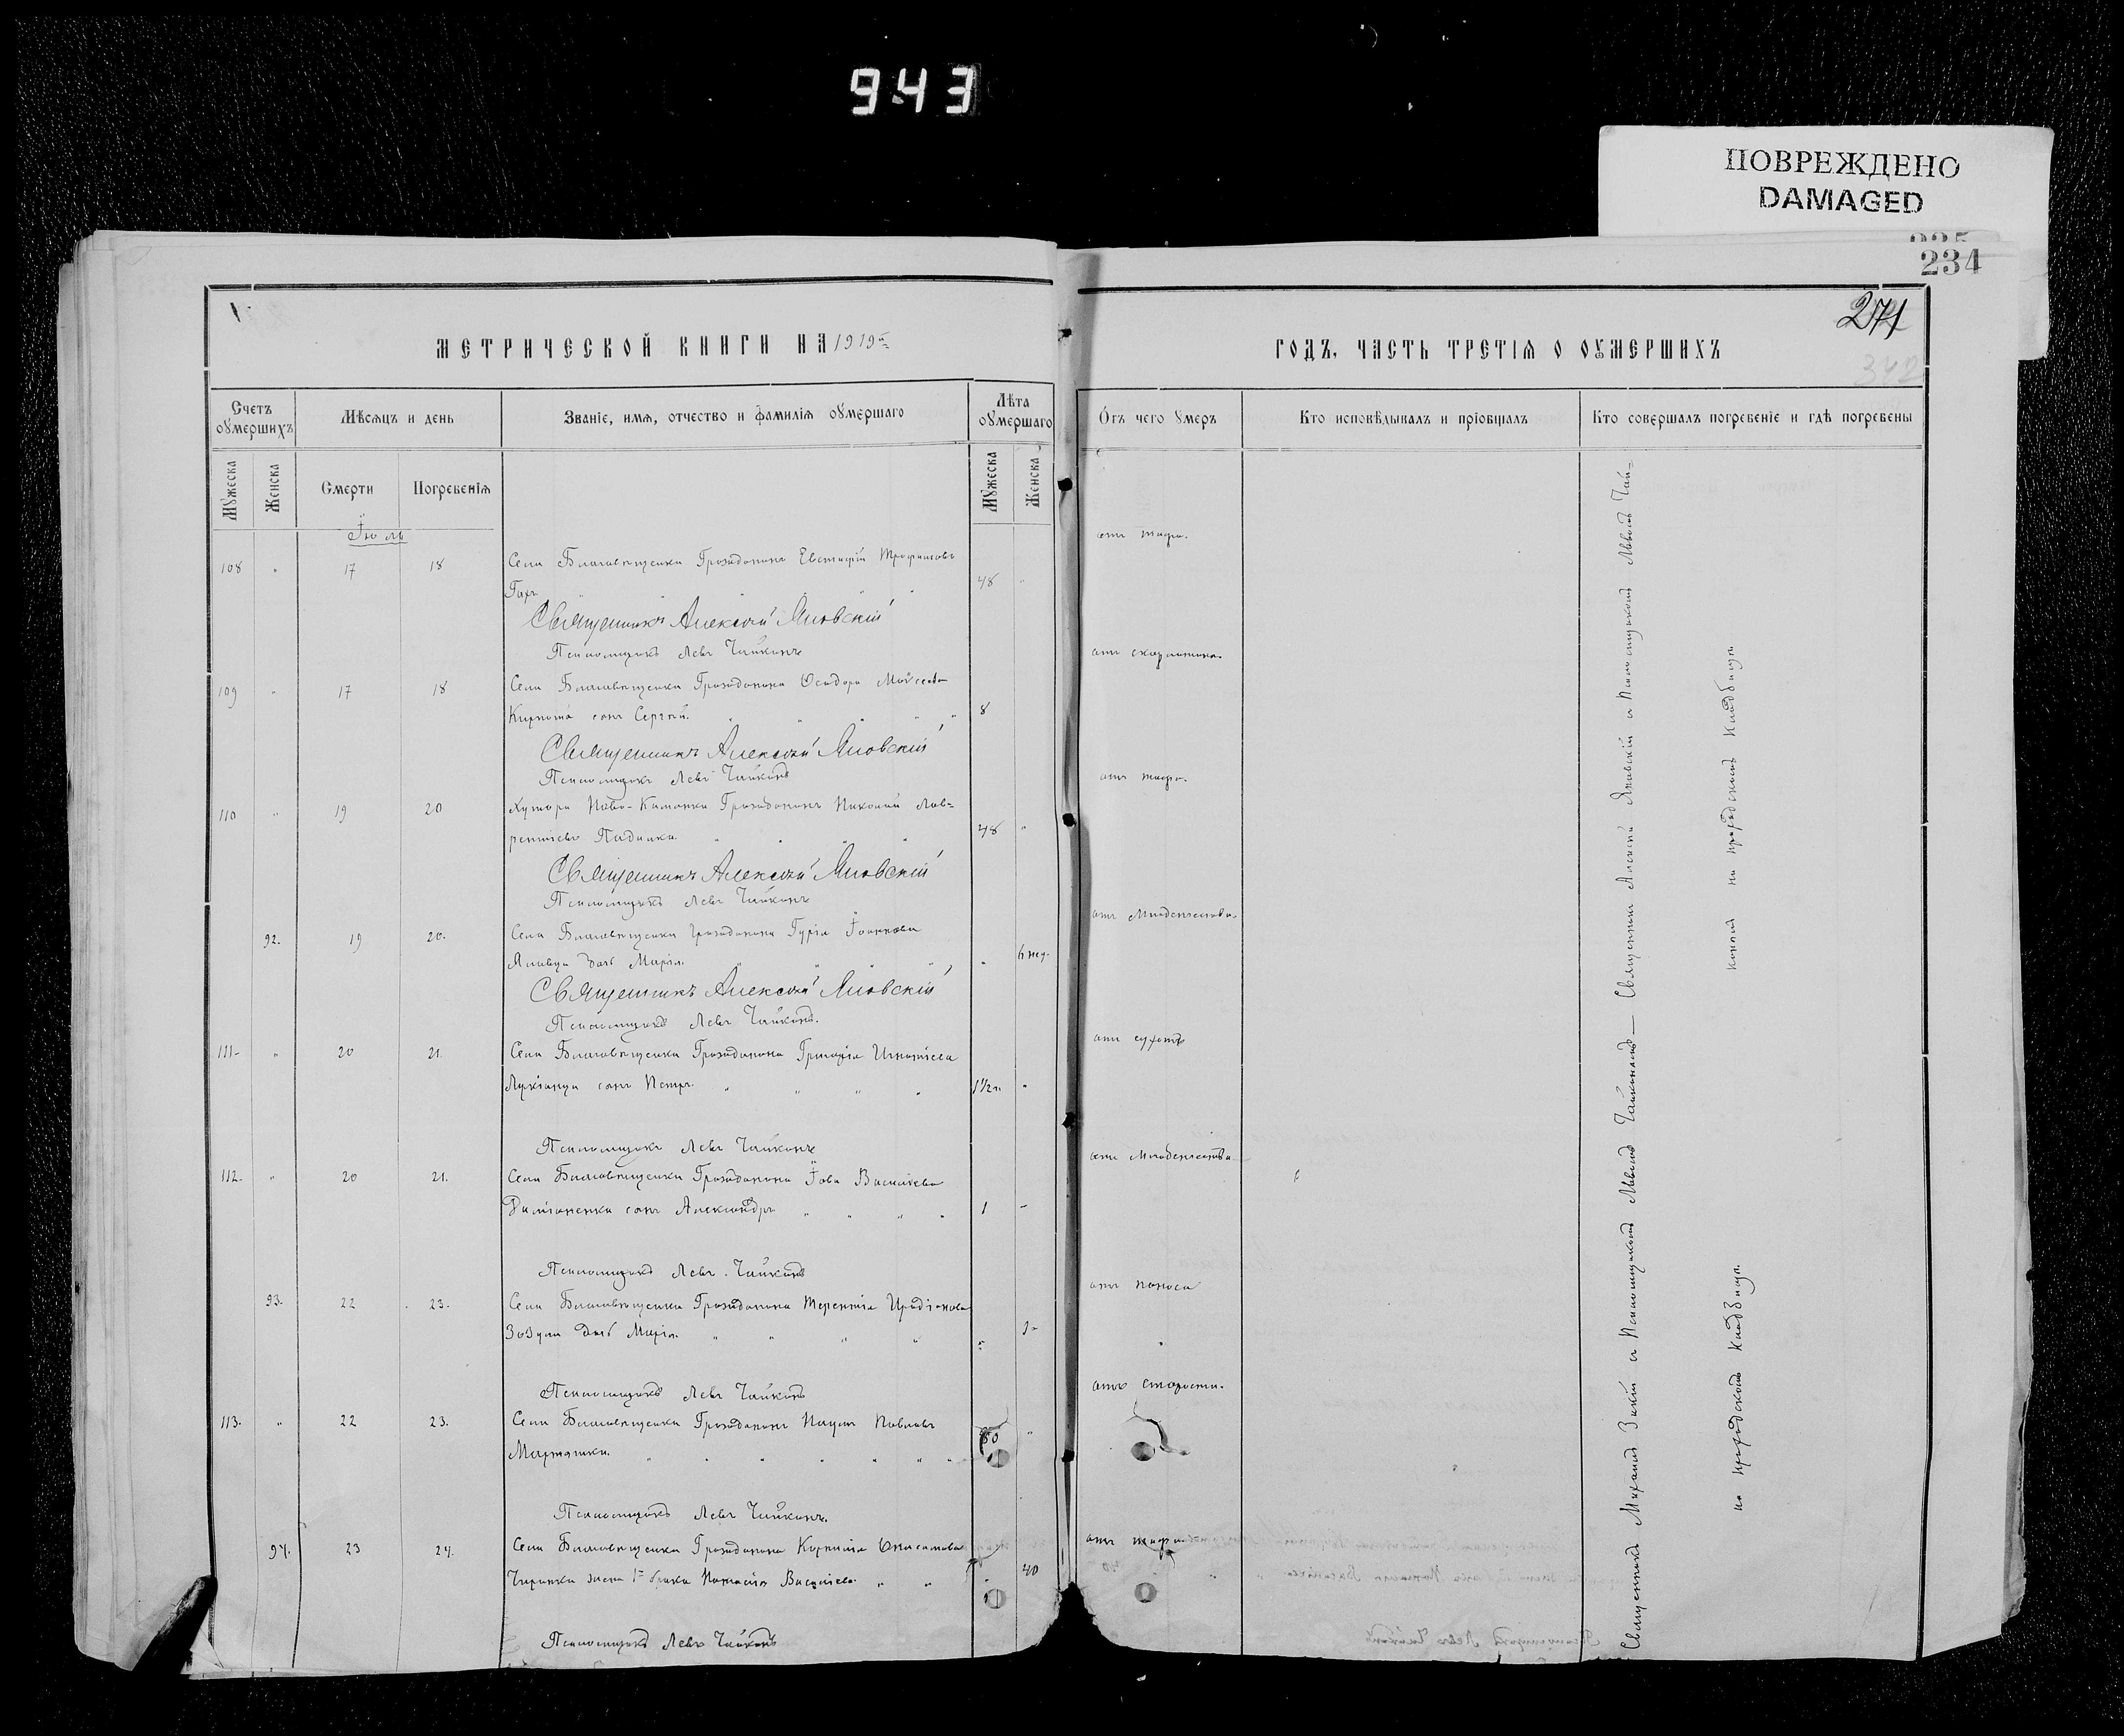 943
ПОВРЕЖДЕНО
DAMAGED
234
271
342
МЕТРИЧЕСКОЙ КНИГИ НА 1919й
ГОДЪ, ЧАСТЬ ТРЕТІЯ О ОУМЕРШИХЪ
Счетъ оумершихъ
Мѣсяцъ и день
Званіе, имя, отчество и фамилія оумершаго
Лѣта оумершаго
Отъ чего умеръ
Кто исповѣдывалъ и пріобщалъ
Кто совершалъ погребеніе и гдѣ погребены
Мужеска
Женска
Смерти
Погребенія
Мужеска
Женска
Іюль
108 " 17 18 Села Благовѣщенки Гражданинъ Евстафій Трофимовъ 48 " отъ тифа.
Священникъ Алексѣй Яновскій
Псаломщикъ Левъ Чайкинъ
109 " 17 18 Села Благовѣщенки Гражданина Ѳеодора Моѵсеева отъ скарлатины.
сынъ Сергѣй. 8
Священникъ Алексѣй Яновскій
Псаломщикъ Левъ Чайкинъ
110 " 19 20 Хутора Ново-Каменки Гражданинъ Николай Лав= отъ тифа.
рентіевъ 48 "
Священникъ Алексѣй Яновскій
Псаломщикъ Левъ Чайкинъ
92. 19 20. Села Благовѣщенки Гражданина Гурія Іоаннова отъ младенчества.
дочь Марія. " 6 нед.
Священникъ Алексѣй Яновскій
Псаломщикъ Левъ Чайкинъ.
111. " 20 21. Села Благовѣщенки Гражданина Григорія Игнатіева отъ сухоты
Лукіанца сынъ Петръ. 1 1/2 г. "
Псаломщикъ Левъ Чайкинъ
112. " 20 21. Села Благовѣщенки Гражданина Іова Василіева отъ младенчества
Даміаненка сынъ Александръ 1 "
Псаломщикъ Левъ Чайкинъ
93. 22 23. Села Благовѣщенки Гражданина Терентія Иродіонова отъ поноса
Зозули дочь Марія. "
Псаломщикъ Левъ Чайкинъ
113. " 22 23. Села Благовѣщенки Гражданинъ Наумъ Павловъ отъ старости.
80 "
Псаломщикъ Левъ Чайкинъ.
94. 23 24. Села Благовѣщенки Гражданина Корнилія Онисимова отъ тифа
жена 1го брака Наталія Василіева " 40
Псаломщикъ Левъ Чайкинъ
Священникъ Алексѣй Яновскій и Псаломщикомъ Львомъ Чай=
кинымъ на приходскомъ кладбищѣ.
Священникъ Михаилъ и Псаломщикомъ Львомъ Чайкинымъ
на приходскомъ кладбищѣ.